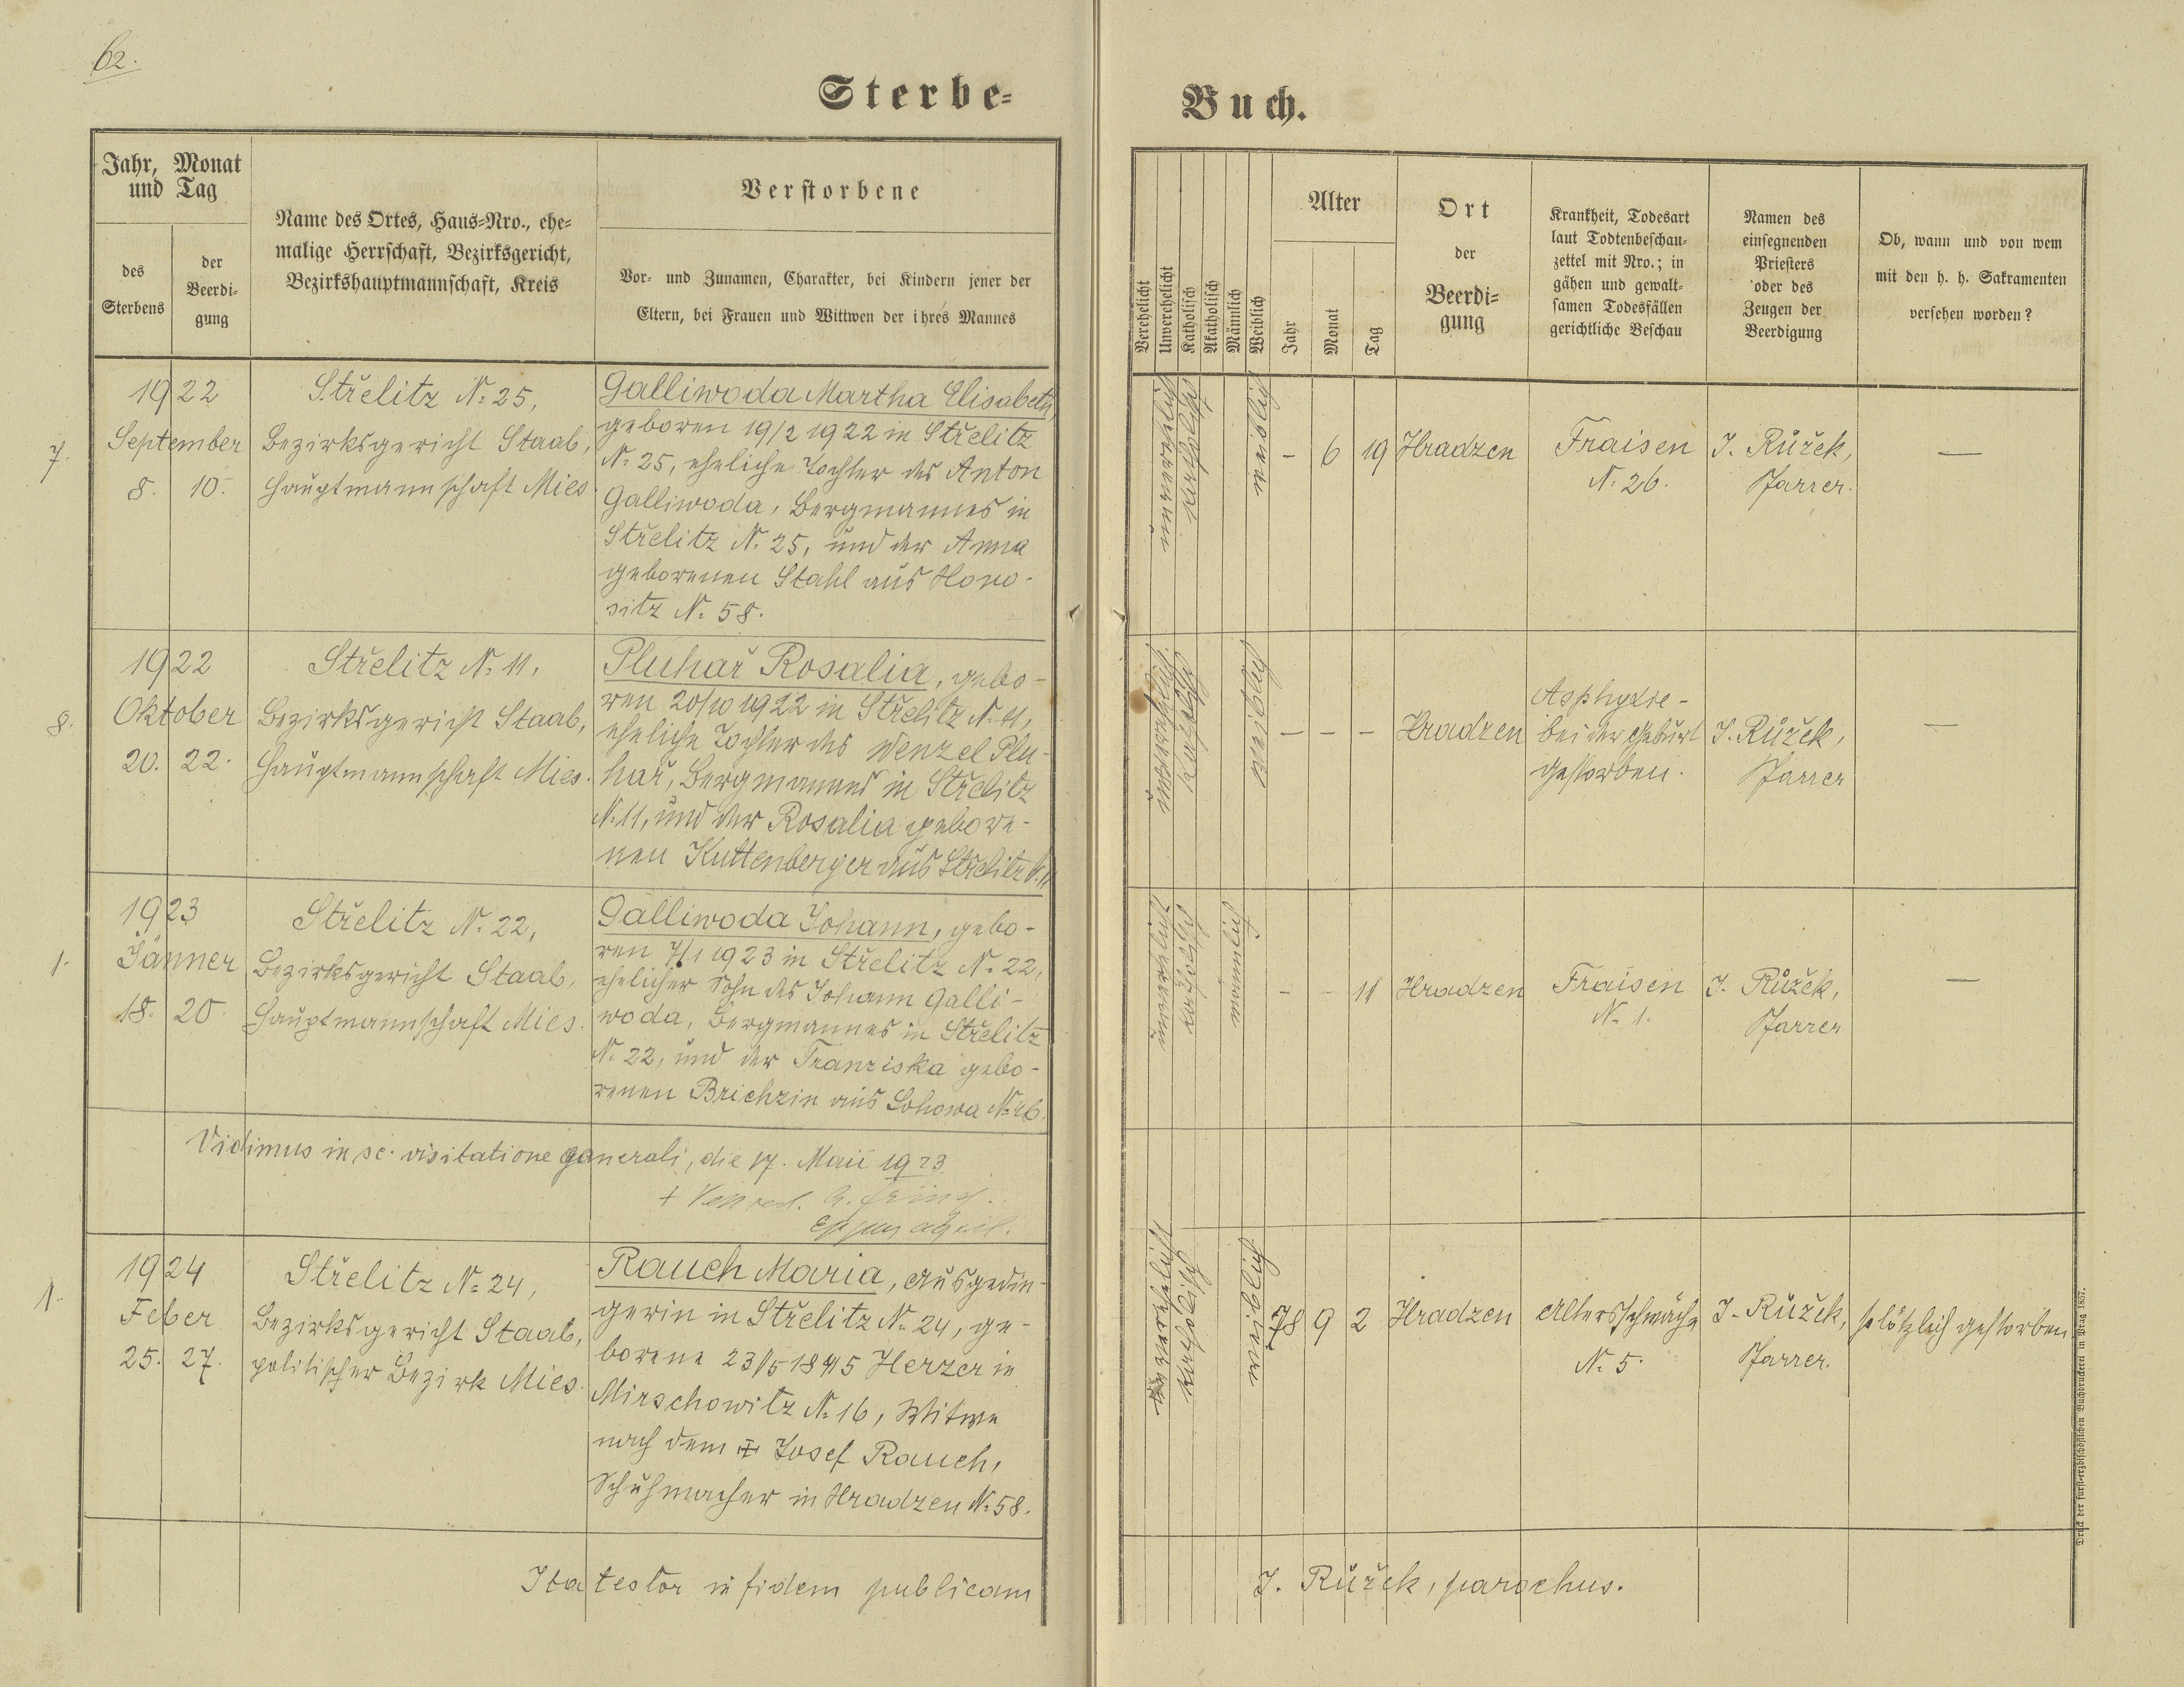 62.
Sterbe=
Buch.
Jahr, Monat
und Tag
des
Sterbens
der
Beerdi=
gung
Name des Ortes, Haus=Nro., ehe=
malige Herrschaft, Bezirksgericht,
Bezirkshauptmannschaft, Kreis
Verstorbene
Vor= und Zunamen, Charakter, bei Kindern jener der
Eltern, bei Frauen und Wittwen der ihres Mannes
Verehelicht
Unverehelicht
Katholisch
Akatholisch
Männlich
Weiblich
Alter
Jahr
Monat
Tag
Ort
der
Beerdi=
gung
Krankheit, Todesart
laut Todtenbeschau=
zettel mit Nro.; in
gähen und gewalt=
samen Todesfällen
gerichtliche Beschau
Namen des
einsegnenden
Priesters
oder des
Zeugen der
Beerdigung
Ob, wann und von wem
mit den h. h. Sakramenten
versehen worden?
7.
1922
September
8. 10.
Střelitz N. 25,
Bezirksgericht Staab,
Hauptmannschaft Mies
Galliwoda Martha Elisabeth,
geboren 19/2 1922 in Střelitz
N. 25, eheliche Tochter des Anton
Galliwoda, Bergmannes in
Střelitz N. 25, und der Anna
geborenen Stahl aus Hono-
sitz N. 58.
unverehelicht
katholisch
weiblich
- 6 19
Hradzen
Fraisen
N. 26.
J. Růžek,
Pfarrer.
—
8.
1922
Oktober
20. 22.
Střelitz N. 11,
Bezirksgericht Staab,
Hauptmannschaft Mies.
Pluhař Rosalia, gebo-
ren 20/10 1922 in Střelitz N. 11,
eheliche Tochter des Wenzel Plu-
hař, Bergmannes in Střelitz
N. 11, und der Rosalia gebore-
nen Kuttenberger aus Střelitz N. 11
unverehelicht
katholisch
weiblich
- - -
Hradzen
Asphyxie -
bei der Geburt
gestorben.
J. Růžek,
Pfarrer
—
1.
1923
Jänner
18. 20.
Střelitz N. 22,
Bezirksgericht Staab,
Hauptmannschaft Mies.
Galliwoda Johann, gebo-
ren 7/1 1923 in Střelitz N. 22,
ehelicher Sohn des Johann Galli-
woda, Bergmannes in Střelitz
N. 22, und der Franziska gebo-
renen Brichzin aus Lohowa N. 26.
unverehelicht
katholisch
männlich
- - 11
Hradzen
Fraisen
N. 1.
J. Růžek,
Pfarrer
—
Vidimus in sc. visitatione generali, die 17. Maii 1923
1.
1924
Feber
25. 27.
Střelitz N. 24,
Bezirksgericht Staab,
politischer Bezirk Mies.
Rauch Maria, Ausgedin-
gerin in Střelitz N. 24, ge-
borene 23/5 1845 Herzer in
Mirschowitz N. 16, Witwe
nach dem ✝ Josef Rauch,
Schuhmacher in Hradzen N. 58.
katholisch
weiblich
78 9 2
Hradzen
Altersschwäche
N. 5.
J. Růžek,
Pfarrer.
plötzlich gestorben
Ita testor in fidem publicam
J. Růžek, parochus.
Druck der fürst=erzbischöflichen Buchdruckerei in Prag 1857.